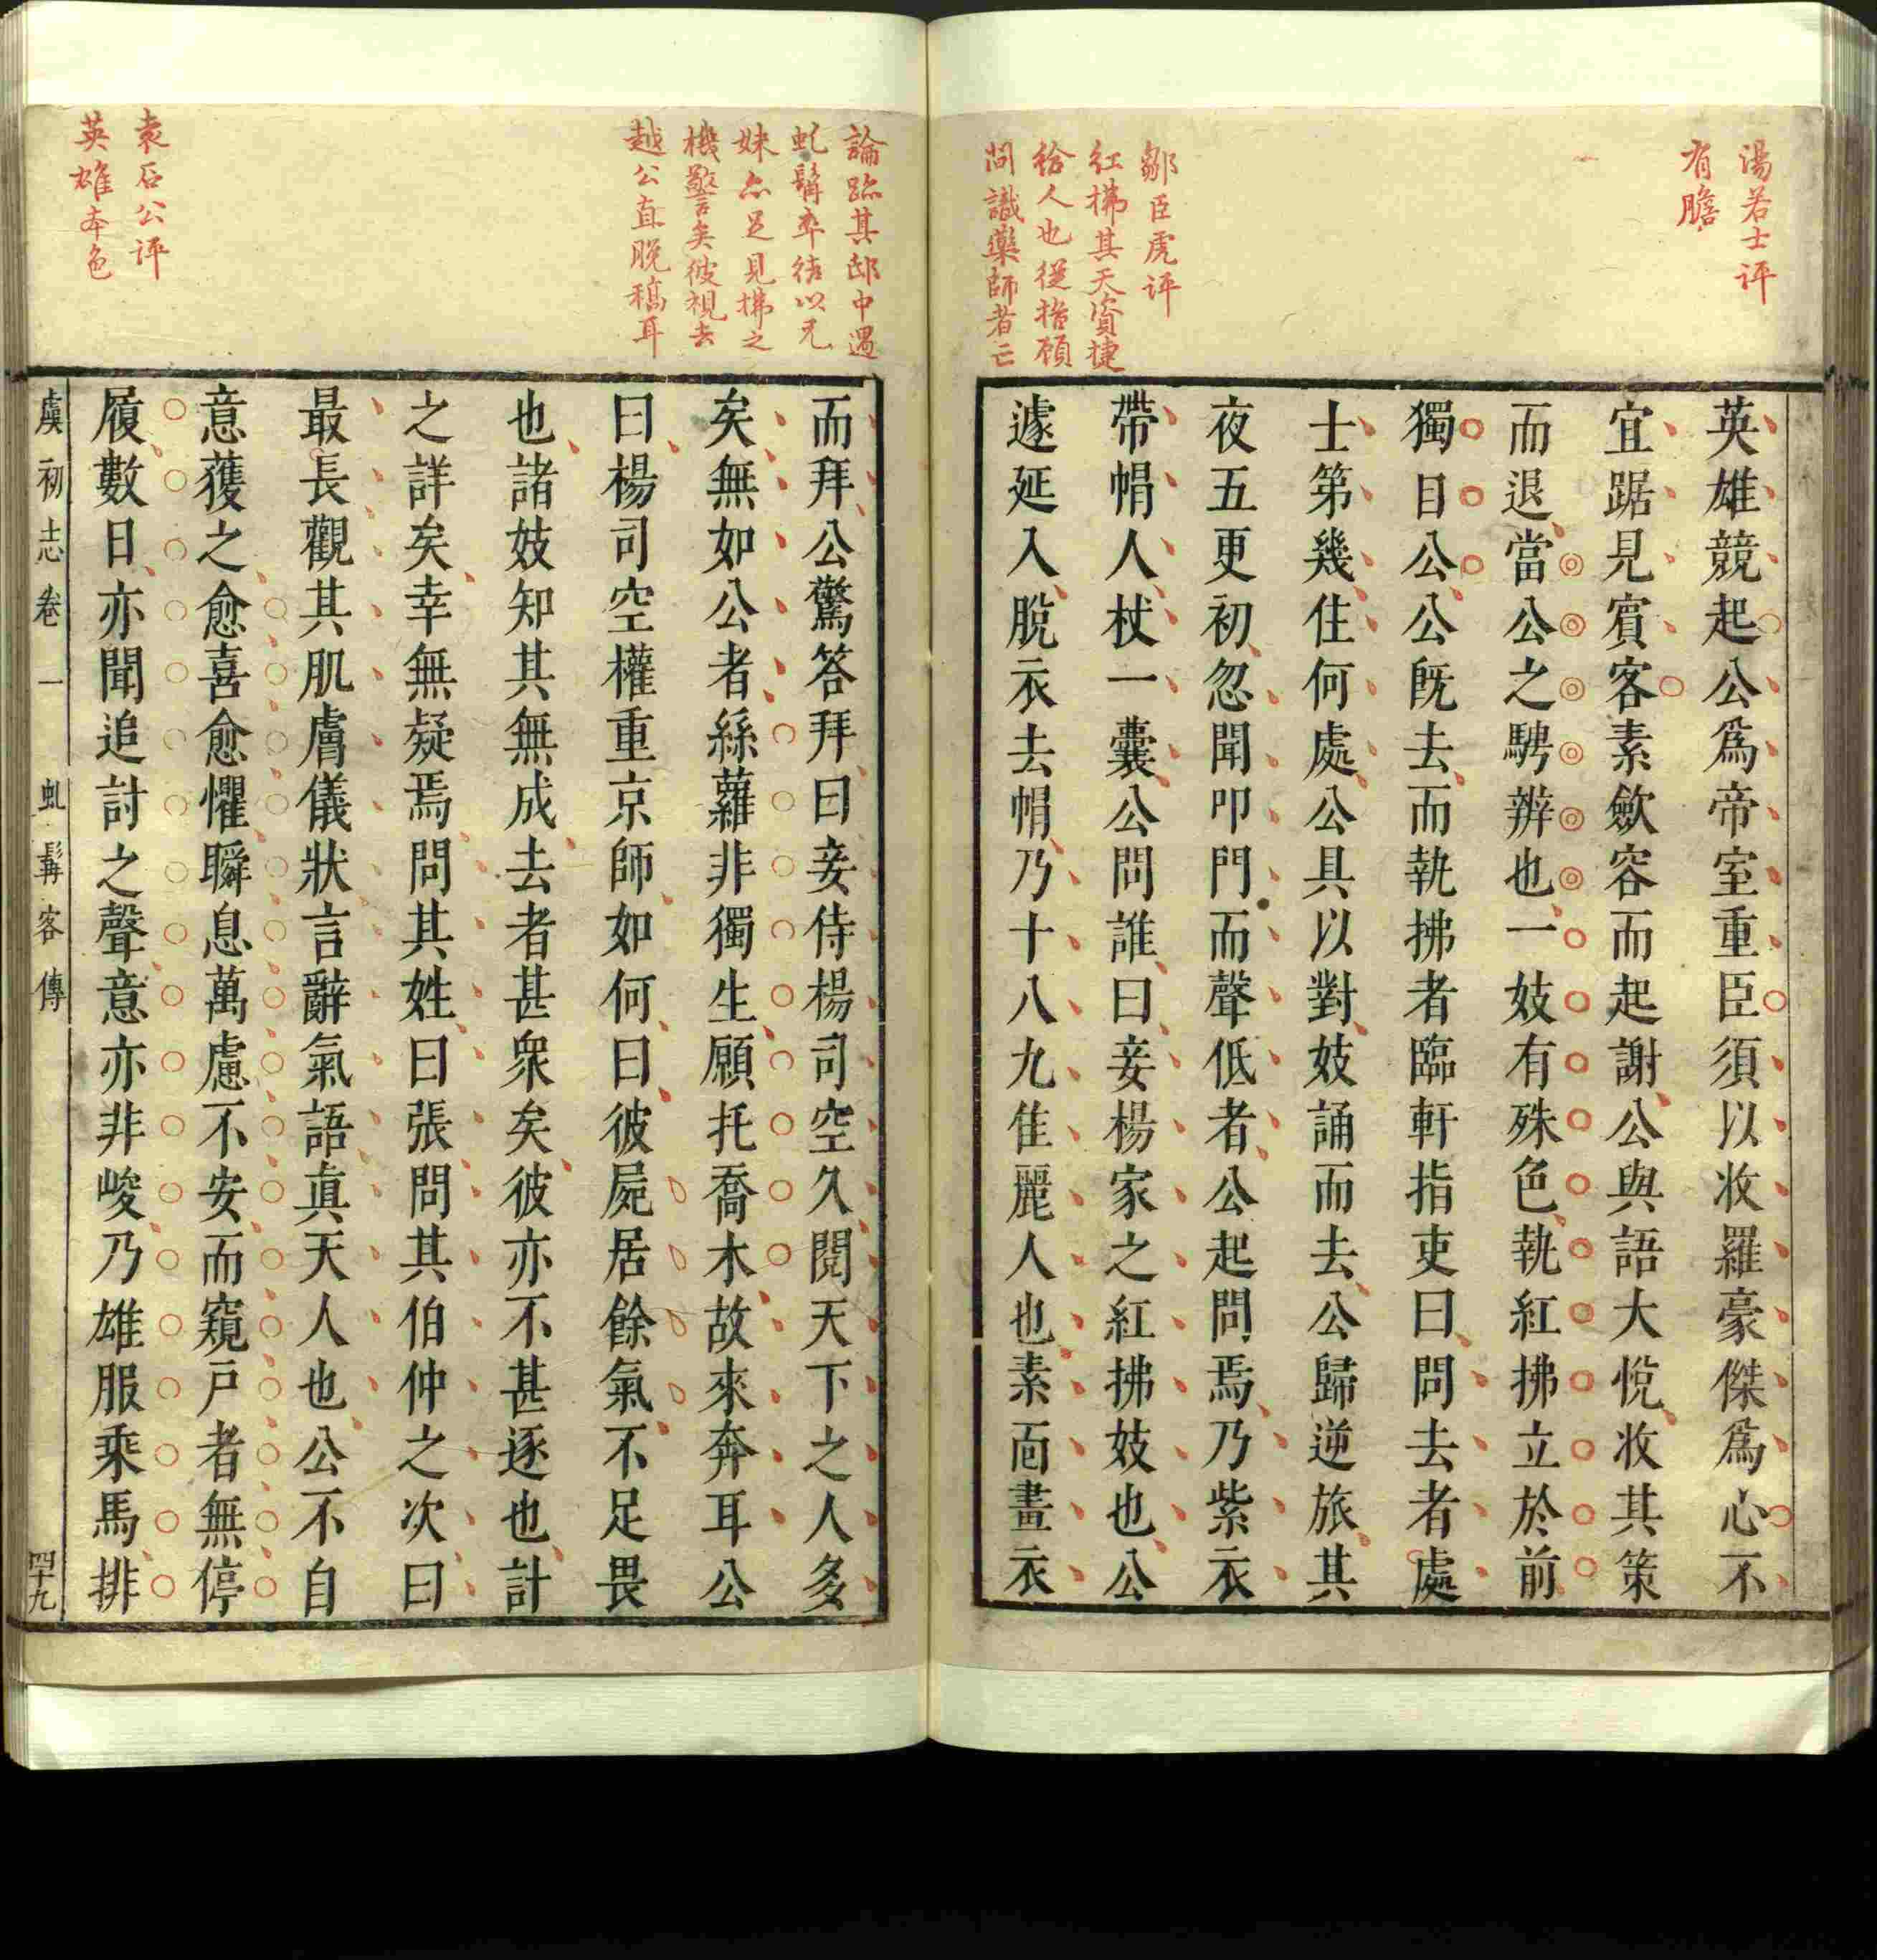 湯若士評
有膽
鄒臣虎評
紅拂其天資捷
給人也從指顧
間識藥師者亡
英雄競起公爲帝室重臣須以收羅豪傑爲心不
宜踞見賓客素斂容而起謝公與語大悅收其策
而退當公之騁辨也一妓有殊色執紅拂立於前
獨目公公旣去而執拂者臨軒指吏曰問去者處
士第幾住何處公具以對妓誦而去公歸逆旅其
夜五更初忽聞叩門而聲低者公起問焉乃紫衣
帶帽人杖一囊公問誰曰妾楊家之紅拂妓也公
遽延入脫衣去帽乃十八九佳麗人也素面畫衣
論跡其邸中遇
虬髯率結以兄
妹亦足見拂之
機警矣彼視去
越公直脫稿耳
袁石公評
英雄本色
而拜公驚答拜曰妾侍楊司空久閱天下之人多
矣無如公者絲蘿非獨生願托喬木故來奔耳公
曰楊司空權重京師如何曰彼屍居餘氣不足畏
也諸妓知其無成去者甚衆矣彼亦不甚逐也計
之詳矣幸無疑焉問其姓曰張問其伯仲之次曰
最長觀其肌膚儀狀言辭氣語真天人也公不自
意獲之愈喜愈懼瞬息萬慮不安而窺戸者無停
履數日亦聞追討之聲意亦非峻乃雄服乘馬排
虞初志卷一 虬髯客傳 四十九